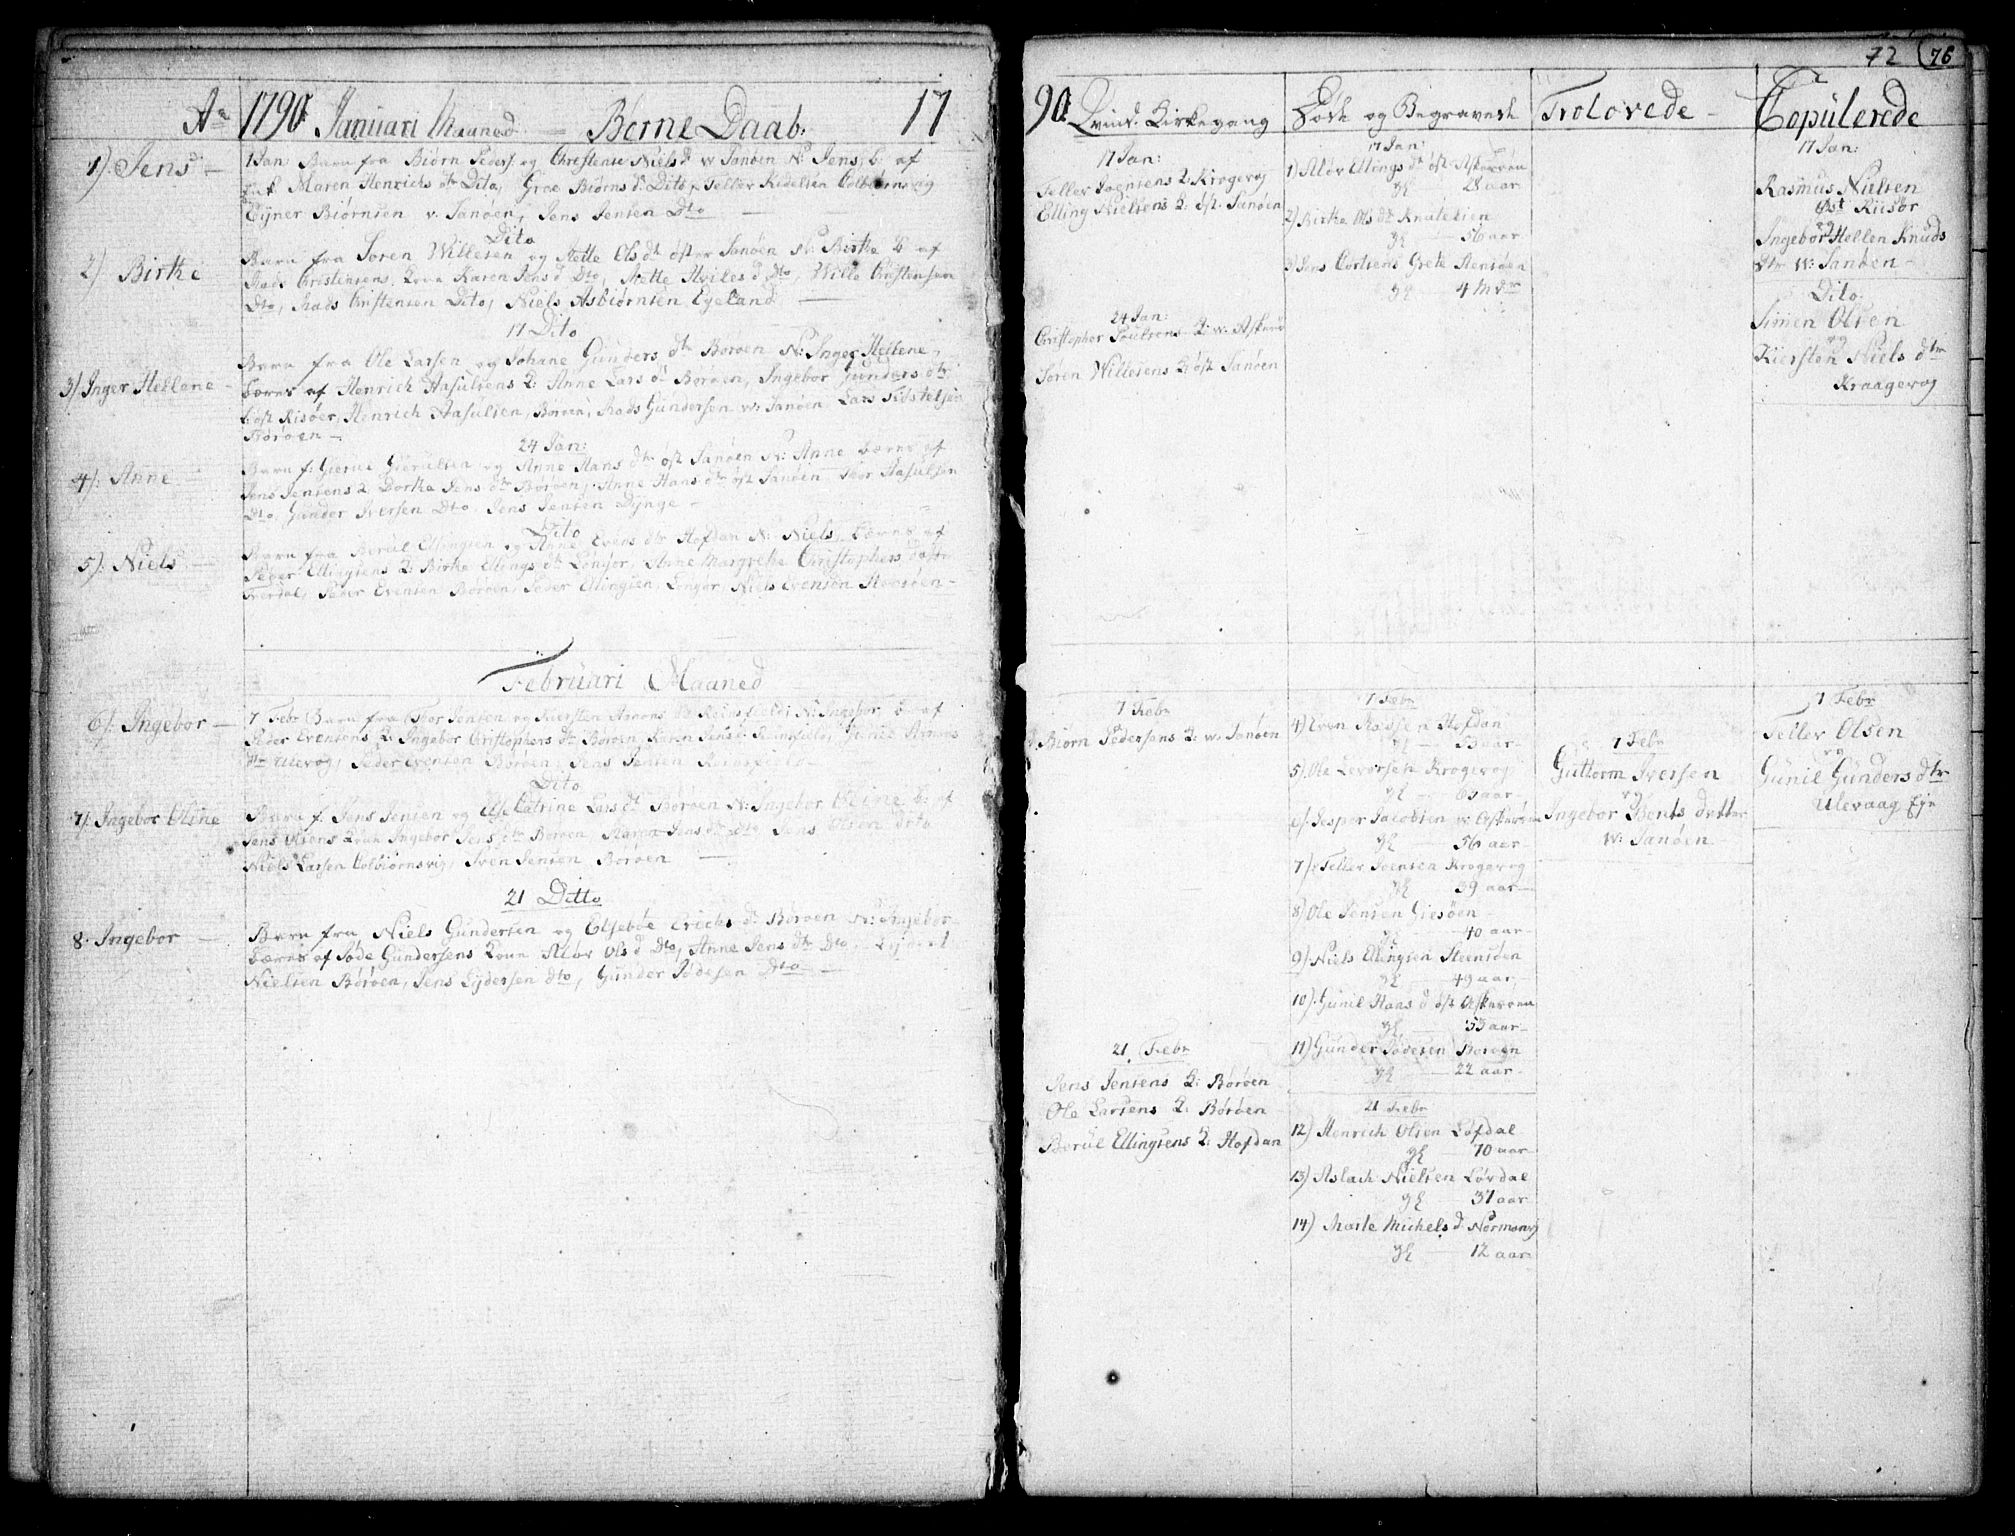 72 76
Ao 1790 Januari Maaned — Børne Daab: 17
1). Jens —
1 Jan: Barn fra Biørn Peders. og Christense Niels d. w Sanøen N: Jens, b: af
Maren Henrichs dtr Dito, Groe Biørns d. Dito, Teller Kedelsen Colbiørnsvig
Ejner Biørnsen v. Sanøen, Jens Jensen Dto —
Dito
2) Birke
Barn fra Søren Willesen og Mette Ols dt øster Sanøen N: Birke b: af
Mads Christensens Kone Karen Jens d Dto, Mette Nielsd Dto, Wille Christensen
Dto, Mads Christensen Dito, Niels Asbiørnsen Eyeland —
17 Dito
3) Inger Hellene —
Barn fra Ole Larsen og Johane Gunders dtr Borøen N: Inger Hellene,
bæres af Henrich Aasulsens K: Anne Lars dt Børøen, Ingebor Gunders dtr
øst Risøer, Henrich Aasulsen, Børøen, Mads Gundersen w: Sanøen, Lars
Børøen —
24 Jan:
4). Anne —
Barn f: Gierul Gierulsen og Anne Hans dtr øst Sanøen N: Anne bæres af
Jens Jensens K: Dorthe Jens dtr Børøen, Anne Hans dtr øst Sanøen, Thor Aasulsen
Dto, Gunder Iversen Dto, Jens Jensen Dynge —
Dito
5). Niels —
Barn fra Berul Ellingsen og Anne Evens dtr Hofdan N: Niels, bæres af
Peder Ellingsens K: Birke Ellings dt Longør, Anne Margrethe Christophers datr
Peder Evensen Børøen, Peder Ellingsen, Longør, Niels Evensøn Stensøen —
Februari Maaned
6). Ingebor —
7 Febr Barn fra Thor Jensen og Kiersten Aanons dt Reinsfield N: Ingebor b: af
Peder Evensens K: Ingebor Christophers dtr Børøen, Karen Jens d. Reinsfield, Gunil Aanons
dtr Ulevog, Peder Evensen Børøen, Jens Jensen Reinsfield —
Dito
7). Ingebor Oline
Barn f. Jens Jensen og Else Catrine Lars dt Børøen N: Ingebor Oline b: af
Jens Olsens Kone Ingebor Jens dtr Børøen, Maren Jens dtr Dto, Jens Olsen Dito
Niels Larsen Colbiørnsvig, Sven Jensen Børøen —
21 Ditto
8. Ingebor —
Barn fra Niels Gundersen og Elsebøe Erichs d: Børøen N: Ingebor
bæres af Søde Gundersens Kone Aløv Ols d Dto, Anne Jens dtr Dto, Ejder
Nielsen Børøen, Jens Ejdersen dto, Gunder Sødesen Dto —
90 Qvind. Kirkegang
17 Jan:
Teller Joensens K: Krogevog
Elling Nielsens K: øst. Sanøen
24 Jan:
Christopher Poulsens K: w: Askerø
Søren Willesens K: øst Sanøen
7 Febr
Biørn Pedersens K: w: Sanøen
21 Febr
Jens Jensens K: Børøen
Ole Larsens K: Børøen
Berul Ellingsens K: Hofdan
Døde og Begravede
17 Jan:
1) Aløv Ellings dt øst Askerøen
28 aar
2) Birke Ols dtr Knutesien
56 aar
3) Jens Cortsens Grete Stensøen
4 Mdr
7 Febr
4) Even Madsen Hofdan
53 aar —
5). Ole Leversen Krogevog
63 aar —
6). Jesper Jacobsen w: Askerøen
56 aar —
7) Teller Joensen Krogevog
39 aar —
8) Ole Jensen Giesøen —
40 aar —
9) Niels Ellingsen Steensøen
49 aar —
10). Gunil Hans d øst Askerøen
53 aar —
11) Gunder Sødesen Børøen
22 aar —
21 Febr
12) Henrich Olsen Løfdal
70 aar
13) Aslach Nielsen Løvdal
37 aar
14) Marte Michels d. Normanvig
12 aar
Trolovede —
7 Febr
Guttorm Iversen
og
Ingebor Bents datter
w: Sanøen
Copulerede
17 Jan:
Rasmus Nielsen
Øst Riisør
og
Ingebor Hellen Knuds
dtr w: Sanøen —
Dito
Simen Olsen
og
Kiersten Niels dtr
Kraagevog
7 Febr
Teller Olsen
og
Gunil Gunders dtr
Ulevaag Eje